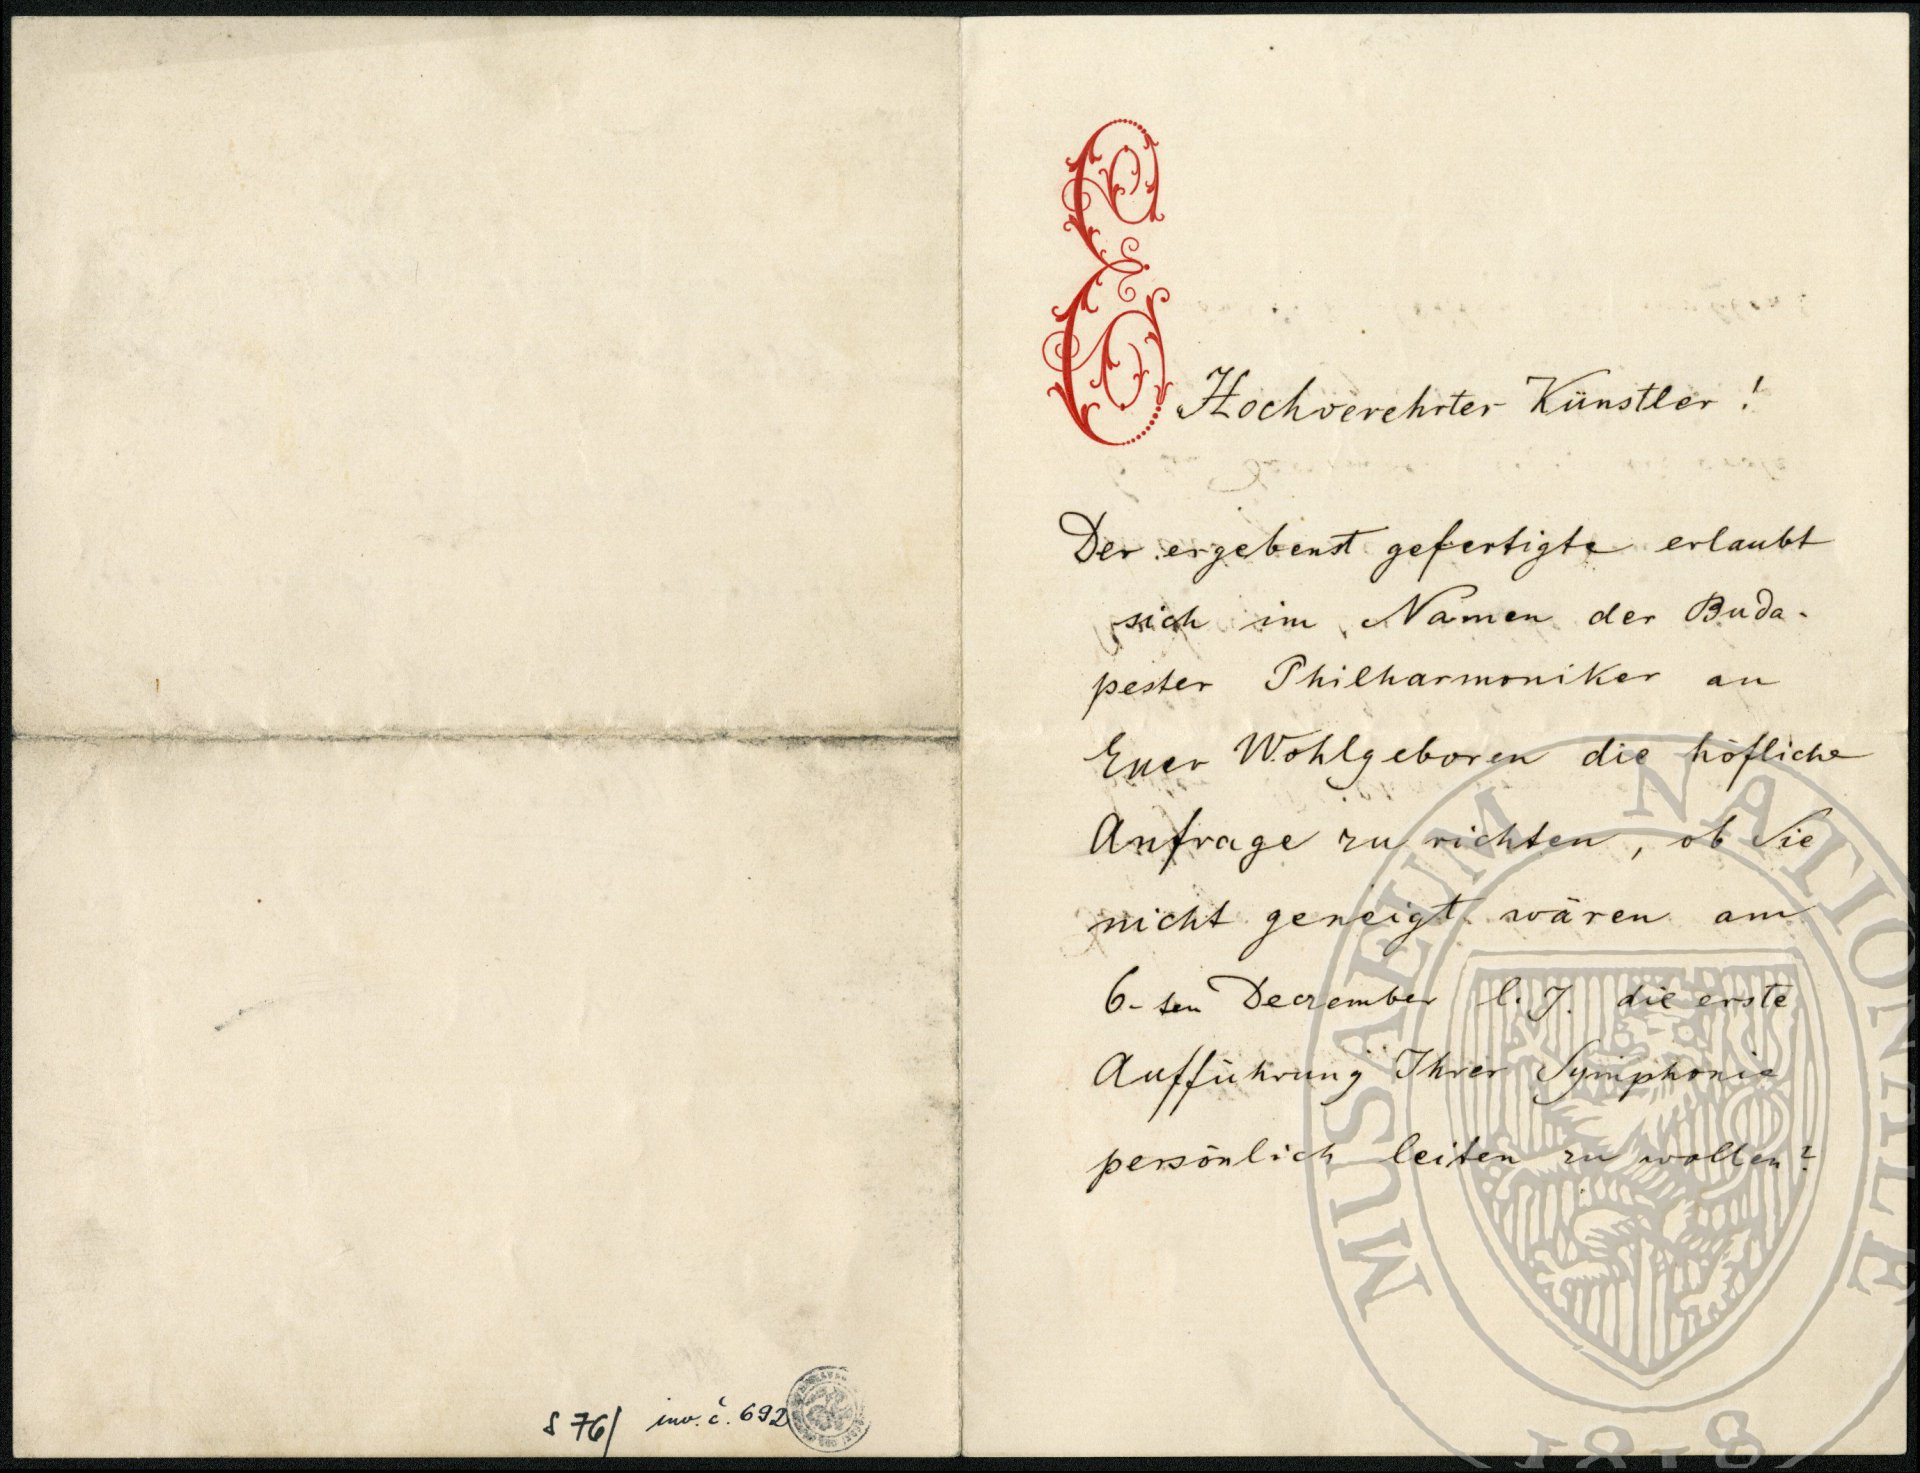 Hochverehrter Künstler!
Der ergebenst gefertigte erlaubt
sich im Namen der Buda-
pester Philharmoniker an
Euer Wohlgeboren die höfliche
Anfrage zu richten, ob Sie
nicht geneigt wären am
6-ten Dezember l. J. die erste
Aufführung Ihrer Symphonie
persönlich leiten zu wollen?
S 76/ inv. č. 692
MUSAEUM NATIONALE
1818